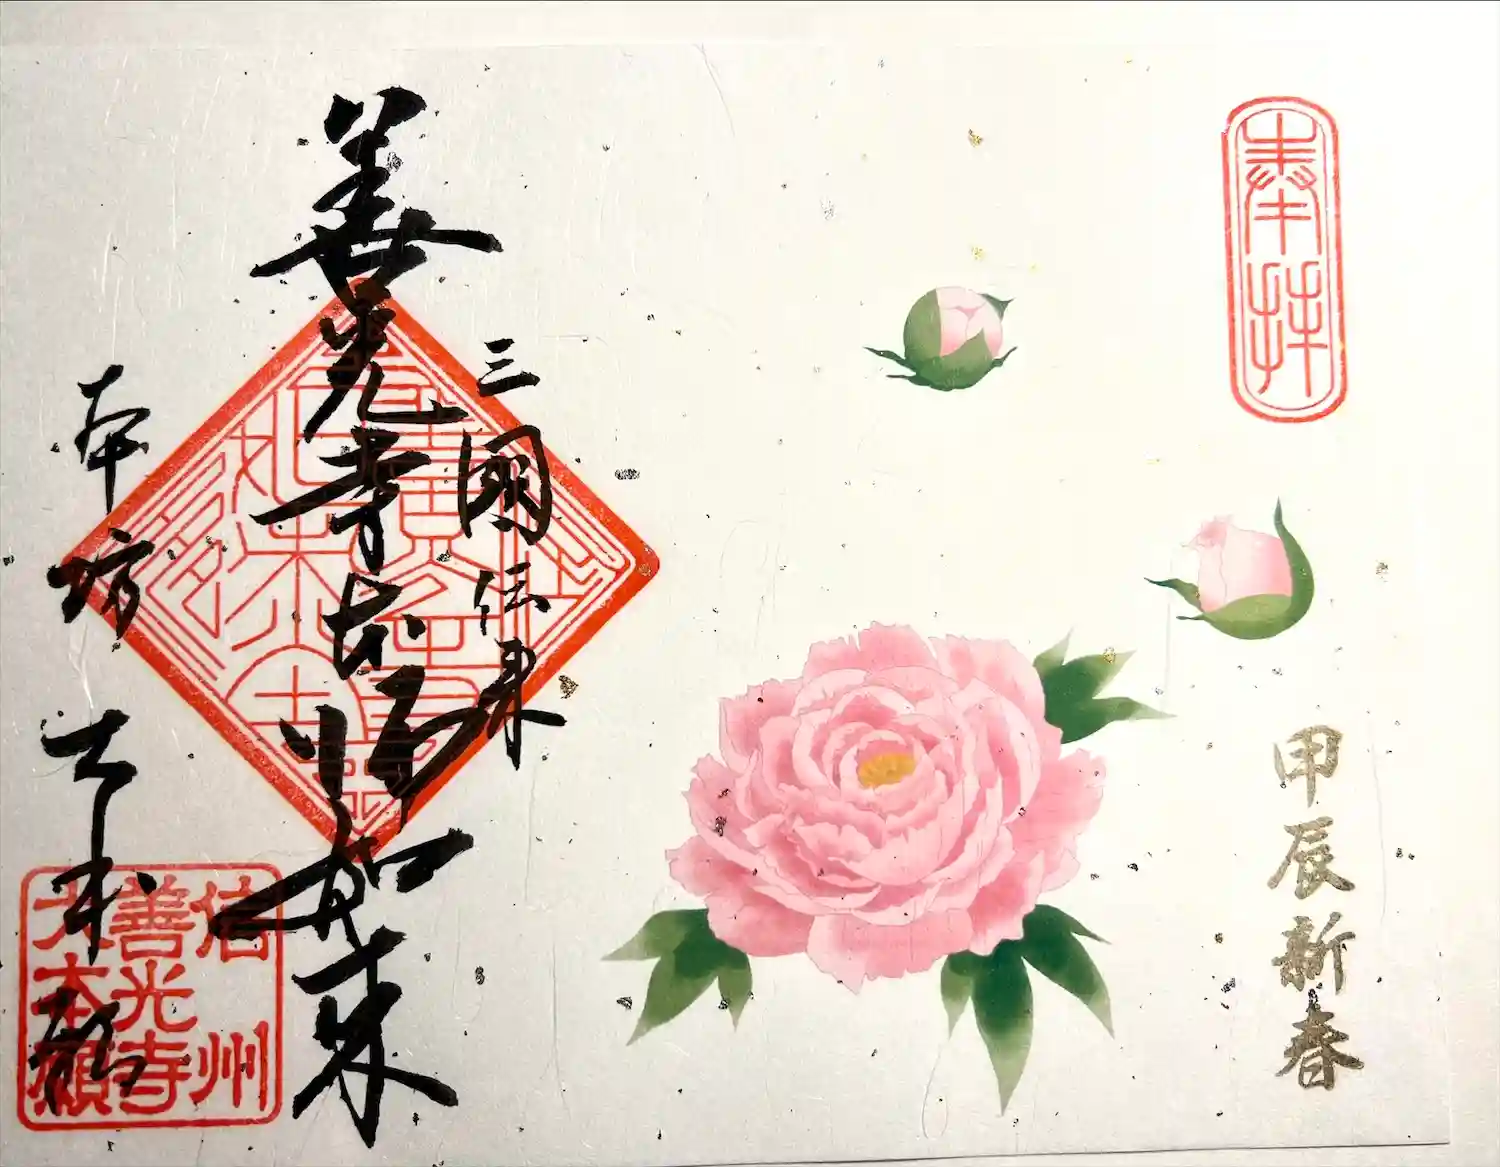 奉拝
甲辰新春
三國伝来
善光寺本師如来
本坊
大本願
信州
善光寺
大本願